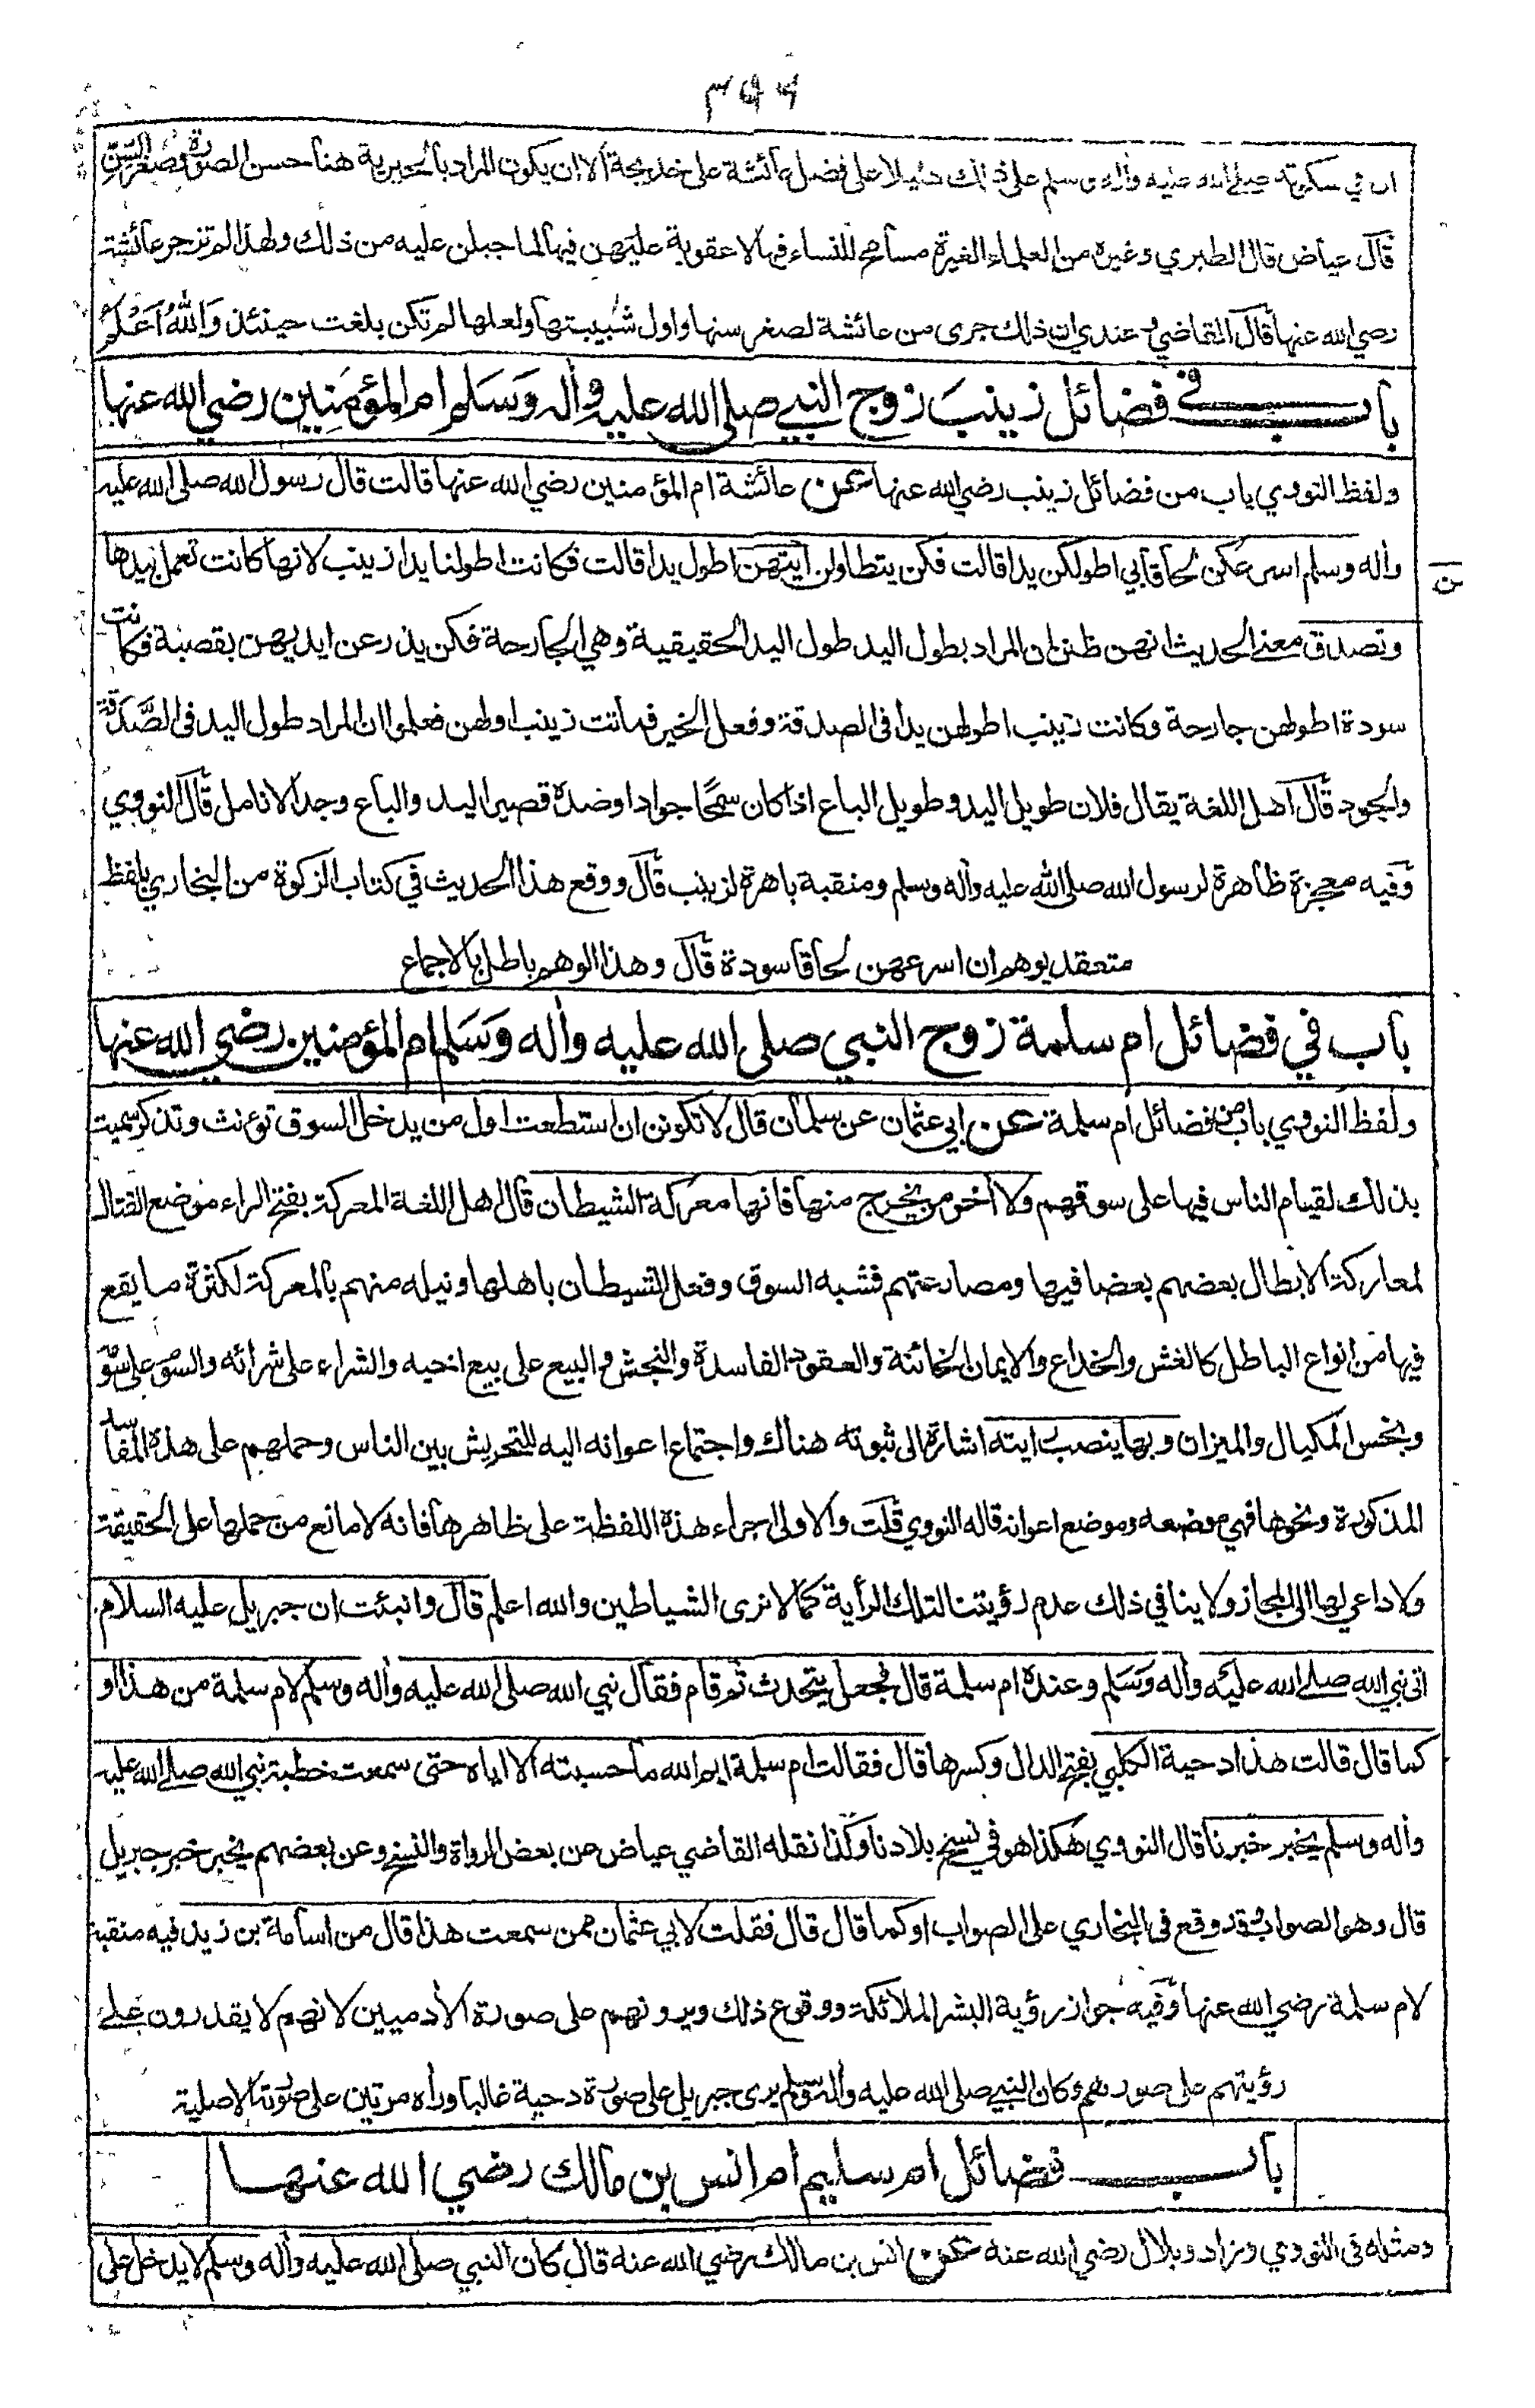 ٣٩٩
ان في سكوته صلى الله عليه واله وسلم على ذلك دليلا على فضل عائشة على خديجة الا ان يكون المراد بالخيرية هنا حسن الصورة وصغر السن
قال عياض قال الطبري وغيره من العلماء الغيرة مسامح للنساء فيها لا عقوبة عليهن فيها لما جبلن عليه من ذلك ولهذا لم تزجر عائشة
رضي الله عنها قال القاضي وعندي ان ذلك جرى من عائشة لصغر سنها واول شبيبتها ولعلها لم تكن بلغت حينئذ والله اعلم
باب في فضائل زينب زوج النبي صلى الله عليه واٰله وسلم ام المؤمنين رضي الله عنها
ولفظ النووي باب من فضائل زينب رضي الله عنها عن عائشة ام المؤمنين رضي الله عنها قالت قال رسول الله صلى الله عليه
واٰله وسلم اسرعكن لحاقا بي اطولكن يدا قالت فكن يتطاولن ايتهن اطول يدا قالت فكانت اطولنا يدا زينب لانها كانت تعمل بيدها
وتصدق معنى الحديث انهن ظنن ان المراد بطول اليد طول اليد الحقيقية وهي الجارحة فكن يذرعن ايديهن بقصبة فكانت
سودة اطولهن جارحة وكانت زينب اطولهن يدا في الصدقة وفعل الخير فماتت زينب اولهن فعلموا ان المراد طول اليد في الصدقة
والجود قال اهل اللغة يقال فلان طويل اليد وطويل الباع اذا كان سمحا جوادا وضده قصير اليد والباع وجد الانامل قال النووي
وفيه معجزة ظاهرة لرسول الله صلى الله عليه واله وسلم ومنقبة باهرة لزينب قال ووقع هذا الحديث في كتاب الزكوة من البخاري بلفظ
متعقد يوهم ان اسرعهن لحاقا سودة قال وهذا الوهم باطل بالاجماع
باب في فضائل ام سلمة زوج النبي صلى الله عليه واٰله وسلم ام المؤمنين رضي الله عنها
ولفظ النووي باب من فضائل ام سلمة عن ابي عثمان عن سلمان قال لا تكونن ان استطعت اول من يدخل السوق تؤنث وتذكر سميت
بذلك لقيام الناس فيها على سوقهم ولا اخر من يخرج منها فانها معركة الشيطان قال اهل اللغة المعركة بفتح الراء موضع القتال
لمعاركة الابطال بعضهم بعضا فيها ومصارعتهم فشبه السوق وفعل الشيطان باهلها ونيله منهم بالمعركة لكثرة ما يقع
فيها من انواع الباطل كالغش والخداع والايمان الخائنة والعقود الفاسدة والنجش والبيع على بيع اخيه والشراء على شرائه والسوم على سوم
وبخس المكيال والميزان وبها ينصب رايته اشارة الى ثبوته هناك واجتماع اعوانه اليه للتحريش بين الناس وحملهم على هذه المفاسد
المذكورة ونحوها فهي موضعه وموضع اعوانه قاله النووي قلت والاولى اجراء هذه اللفظة على ظاهرها فانه لا مانع من حملها على الحقيقة
ولا داعي لها الى المجاز ولا ينافي ذلك عدم رؤيتنا لتلك الرأية كما لا نرى الشياطين والله اعلم قال وانبئت ان جبريل عليه السلام
اتى نبي الله صلى الله عليه واٰله وسلم وعنده ام سلمة قال فجعل يتحدث ثم قام فقال نبي الله صلى الله عليه واٰله وسلم لام سلمة من هذا او
كما قال قالت هذا دحية الكلبي بفتح الدال وكسرها قال فقالت ام سلمة ايم الله ما حسبته الا اياه حتى سمعت خطبة نبي الله صلى الله عليه
واٰله وسلم يخبر خبرنا قال النووي هكذا هو في نسخ بلادنا وكذا نقله القاضي عياض عن بعض الرواة والنسخ وعن بعضهم يخبر خبر جبريل
قال وهو الصواب وقد وقع في البخاري على الصواب او كما قال قال فقلت لابي عثمان ممن سمعت هذا قال من اسامة بن زيد فيه منقبة
لام سلمة رضي الله عنها وفيه جواز رؤية البشر الملائكة ووقوع ذلك ويرونهم على صورة الادميين لانهم لا يقدرون على
رؤيتهم على صورهم وكان النبي صلى الله عليه واله وسلم يرى جبريل على صورة دحية غالبا وراٰه مرتين على صورته الاصلية
باب فضائل ام سليم ام انس بن مالك رضي الله عنها
ومثله في النووي وزاد وبلال رضي الله عنه عن انس بن مالك رضي الله عنه قال كان النبي صلى الله عليه واٰله وسلم لا يدخل على